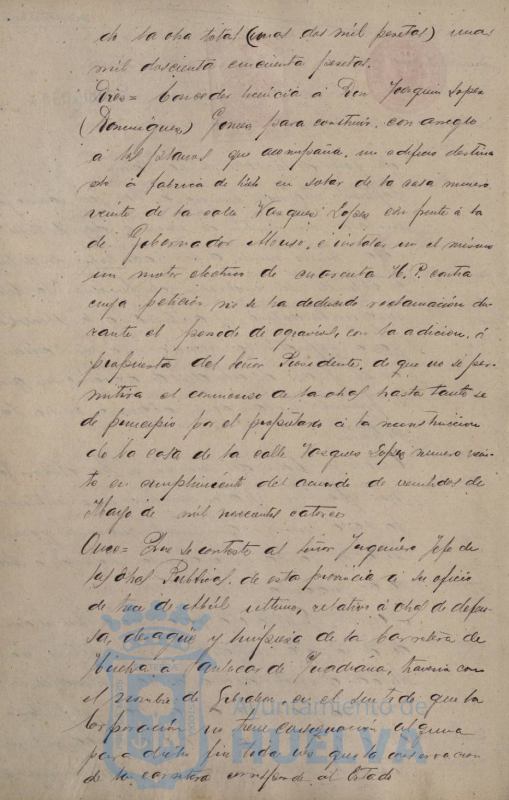 de la obra total (unas dos mil pesetas) unas
mil doscientas cincuenta pesetas.
Diez = Conceder licencia á Don Joaquin Lopez
(Dominguez) Gomez para construir, con arreglo
á los planos que acompaña, un edificio destina
do á fabrica de hielo en solar de la casa numero
veinte de la calle Vazquez Lopez con frente á la
de Gobernador Alonso, é instalar en el mismo
un motor electrico de cuarenta H.P. contra
cuya peticion no se ha deducido reclamación du-
rante el periodo de agravios, con la adicion, á
propuesta del Señor Presidente, de que no se per-
mitira el comienzo de la obra hasta tanto se
de principio por el propietario á la reconstruccion
de la casa de la calle Vazquez Lopez numero vein-
te en cumplimiento del acuerdo de veintidos de
Mayo de mil novecientos catorce
Once = Que se conteste al Señor Ingeniero Jefe de
las Obras Publicas de esta provincia á su oficio
de trece de Abril ultimo, relativo á obras de defen-
sa, desagüe y limpieza de la Carretera de
Huelva á Sanlucar de Guadiana, travesia con
el nombre de en el sentido de que la
Corporación no tiene consignación alguna
para dicho fin toda vez que la conservacion
de la carretera corresponde al Estado
Ayuntamiento de
HUELVA